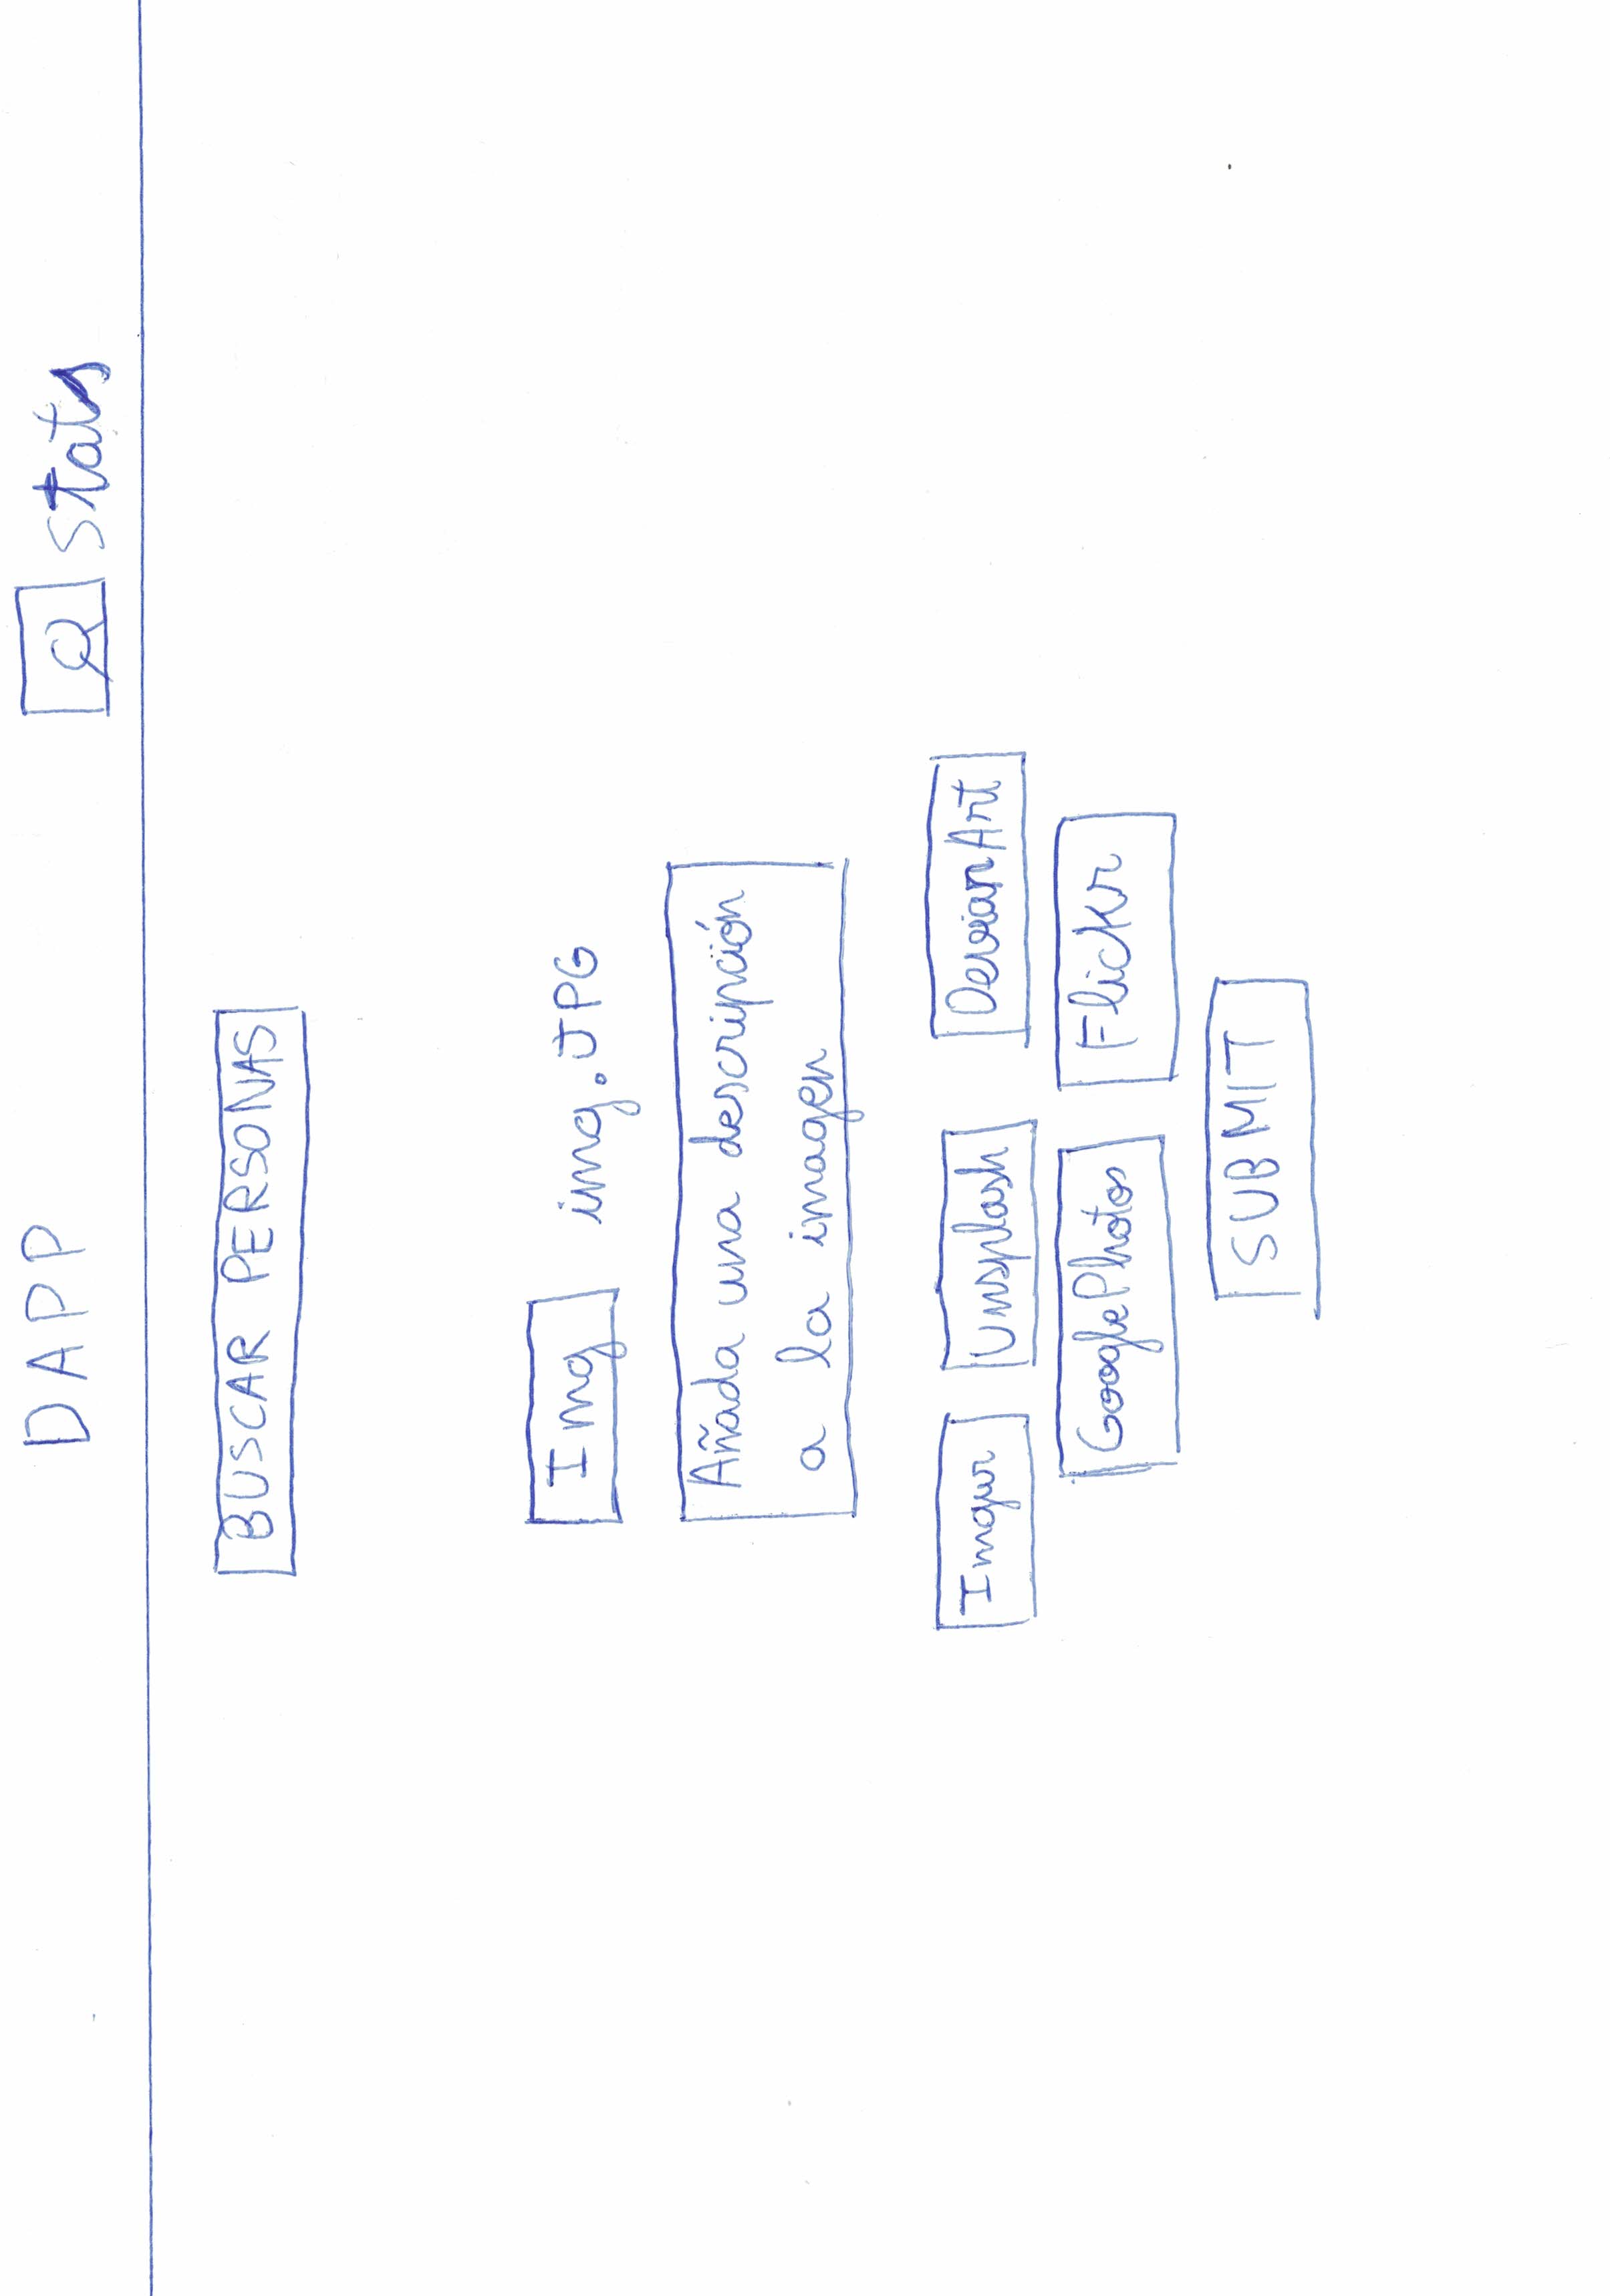 DAPP Stats
BUSCAR PERSONAS
Img img.JPG
Añada una descripción
a la imagen
Imgur Unsplash DevianArt
GooglePhotos Flickr
SUBMIT